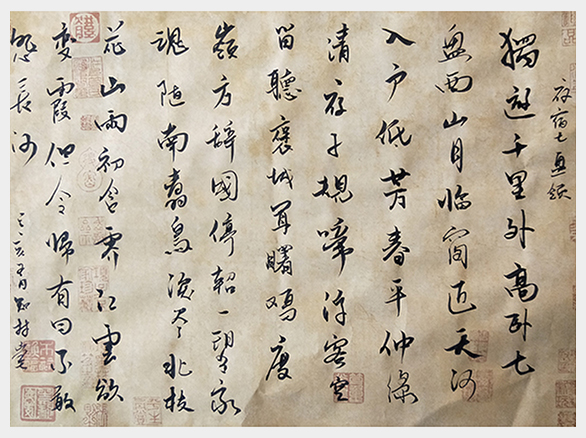 夜宿七盘嶺
獨遊千里外高卧七
盘西山月临窗近天河
入户低芳春平仲綠
清夜子規啼浮客空
留聽褒城闻曙鸡度
嶺方辭國停軺一望家
魂随南翥鳥淚尽北枝
花山雨初含霁江雲欲
变霞但令歸有日不敢
恨長沙